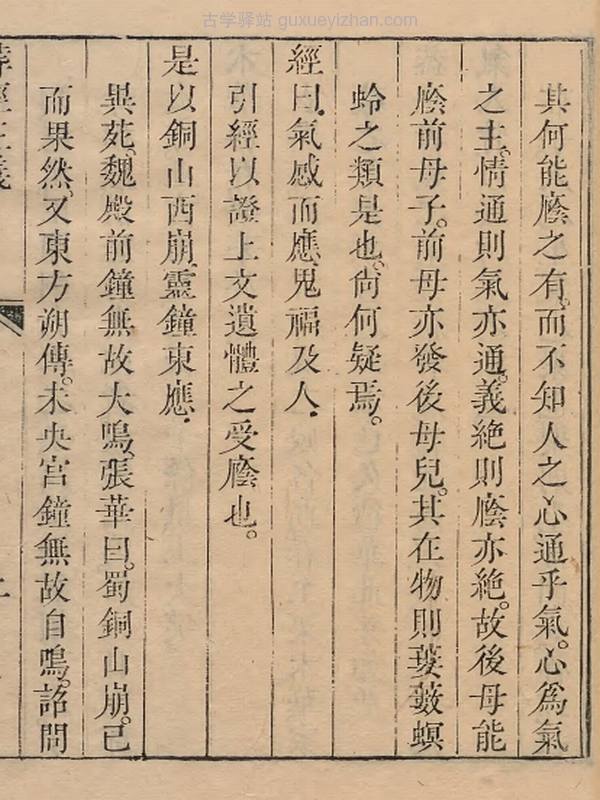 古学驿站 guxueyizhan.com
其何能廕之有。而不知人之心通乎氣。心爲氣
之主。情通則氣亦通。義絶則廕亦絶。故後母能
廕前母子。前母亦發後母兒。其在物則蔞薂螟
蛉之類是也。尙何疑焉。
經曰。氣感而應。鬼福及人。
引經以證上文遺體之受廕也。
是以銅山西崩。靈鐘東應。
吳苑。魏殿前鐘無故大鳴。張華曰。蜀銅山崩。已
而果然。又東方朔傳。未央宮鐘無故自鳴。詔問